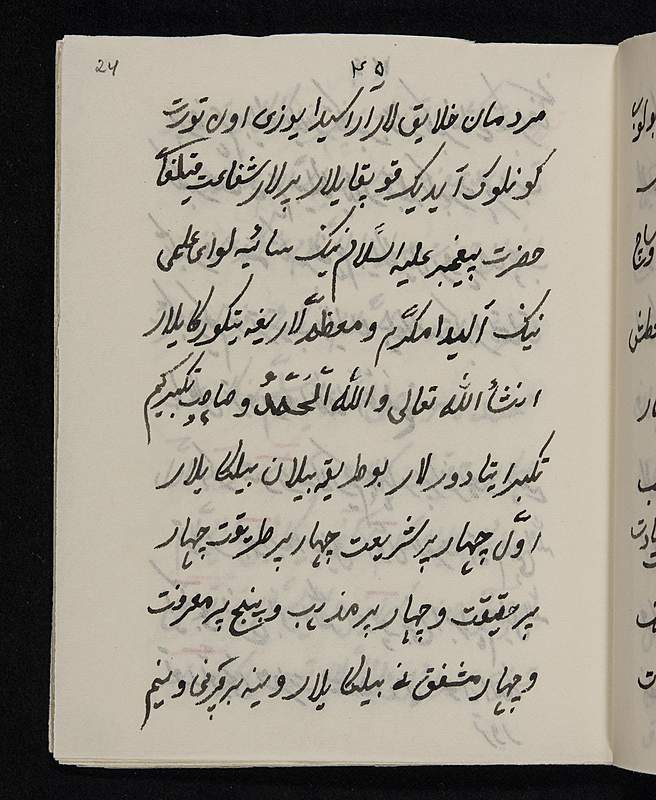 24
۴۵
مردمان خلایق لار آراسیدا یوزی اون تورت
کونلوک آیدیک قوپقایلار پیرلار شفاعت قیلغای
حضرت پیغمبر علیه السّلام نینک سائیه لوای علمی
نینک آلیدا مکرّم و معظّم لاریغه یتکورکایلار
انشأالله تعالی والله اَلْحَمْدُ و صاحب تکبیرکیم
تکبیر ایتادورلار بو طریقه بیلان بیلکایلار
اوّل چهار پیر شریعت چهار پیر طریقت چهار
پیر حقیقت و چهار پیر مذهب و پنج پیر معرفت
و چهار مشفق نی بیلکایلار وینه بیر